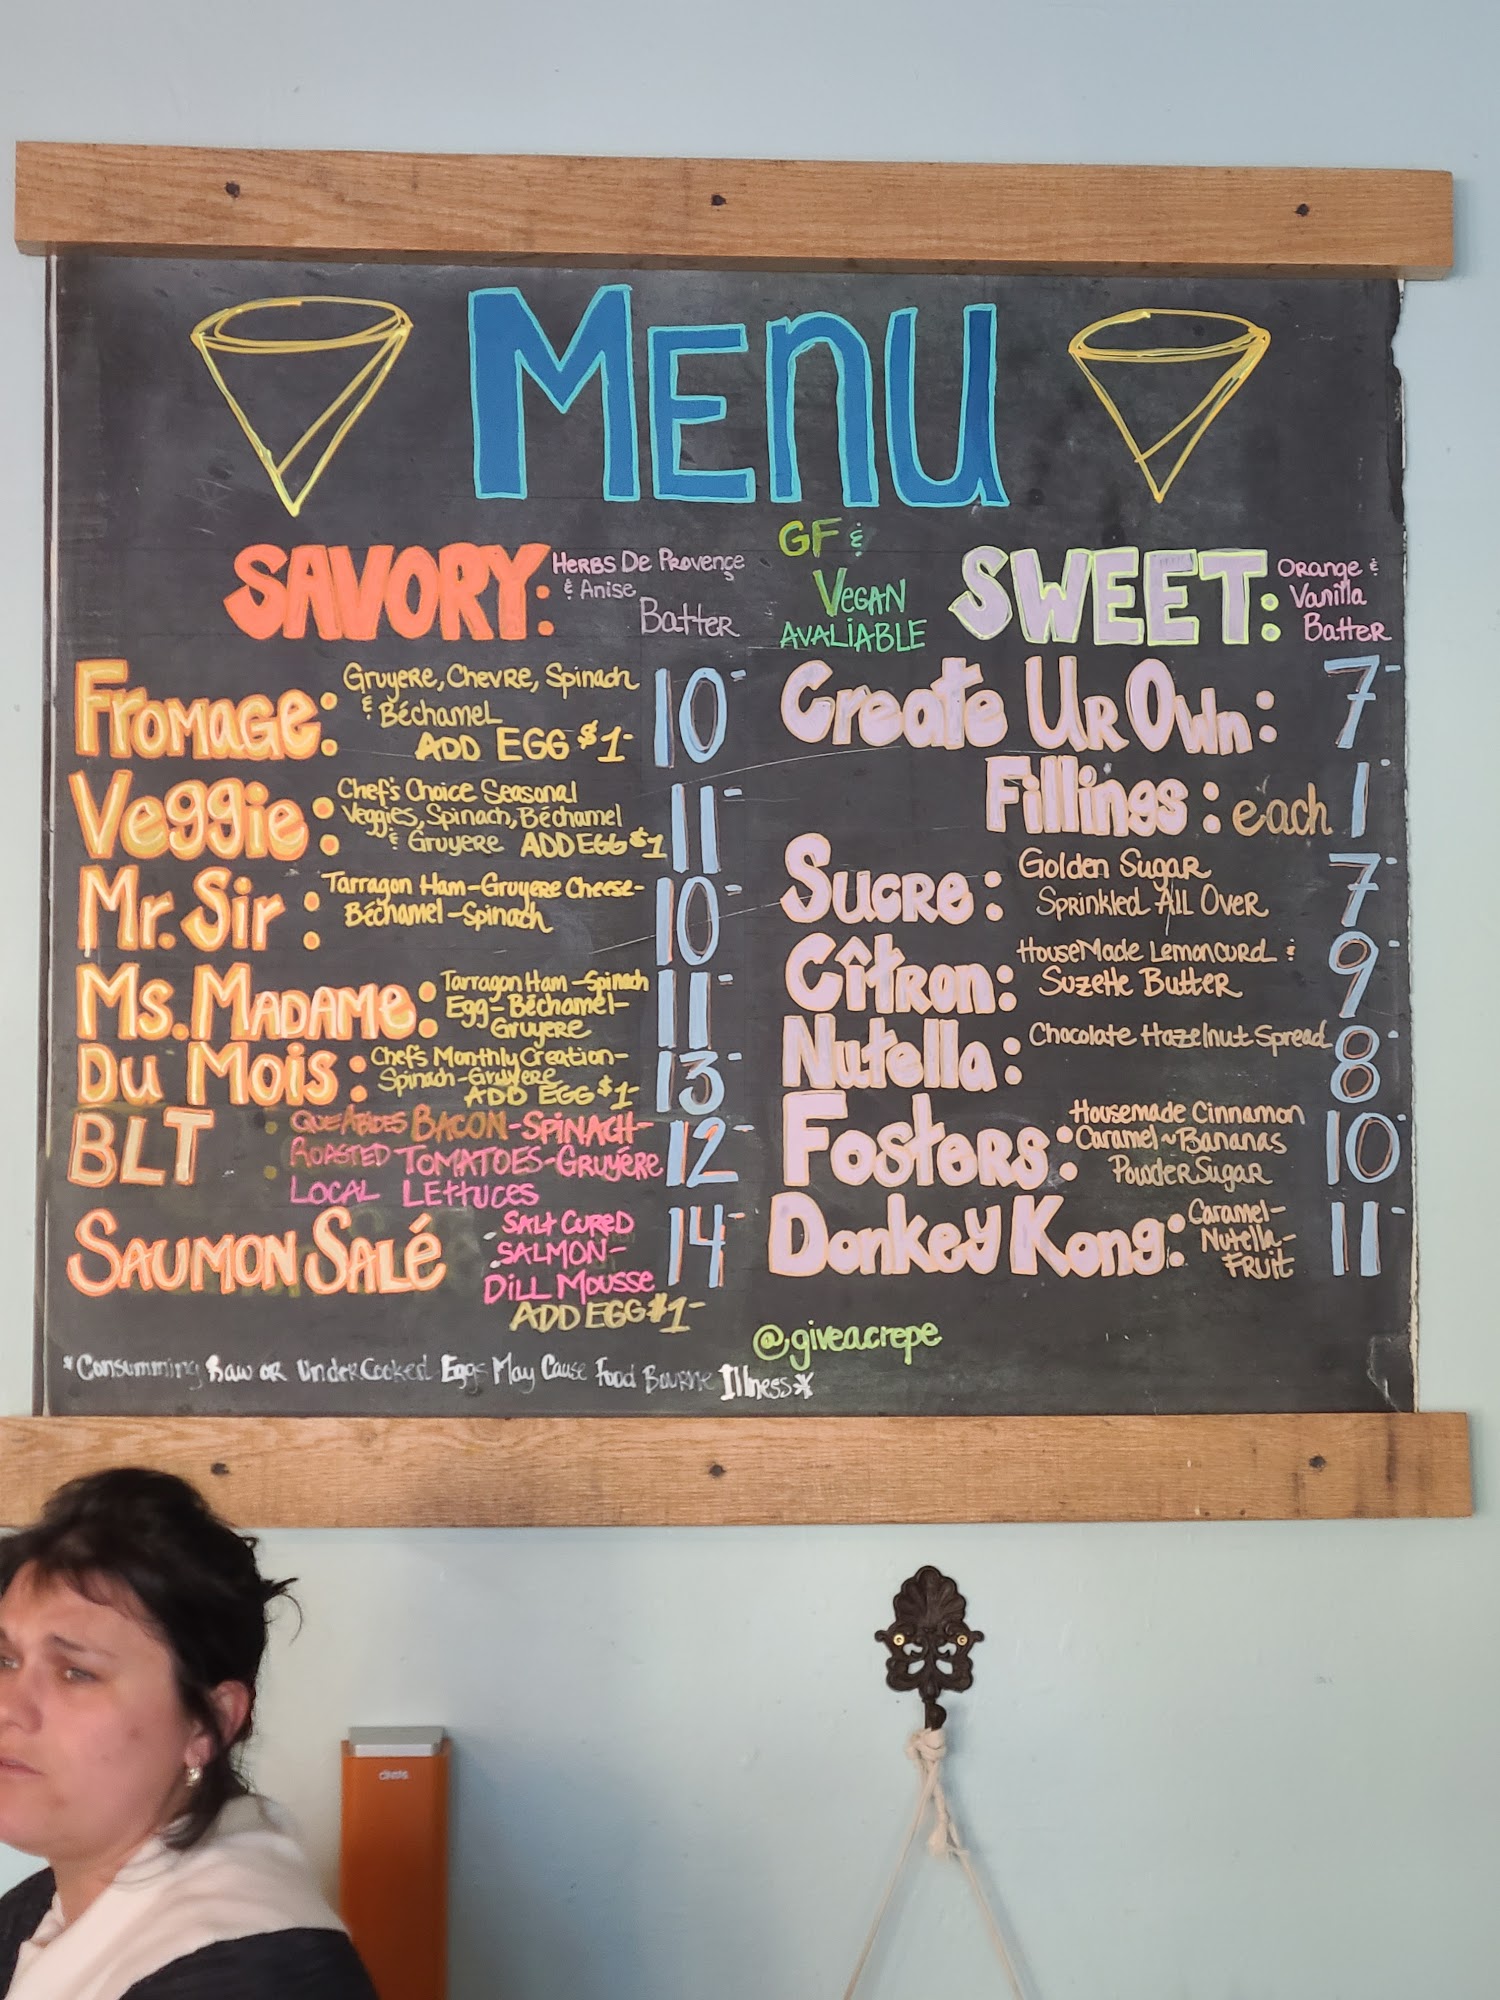 MENU
GF &
VEGAN
AVALIABLE
SAVORY: HERBS DE PROVENÇE
& Anise
Batter
Fromage: Gruyere, Chevre, Spinach 10-
& Béchamel
ADD EGG $1-
Veggie: Chef's Choice Seasonal 11-
Veggies, Spinach, Béchamel
& Gruyere ADD EGG $1
Mr. Sir: Tarragon Ham-Gruyere Cheese- 10-
Béchamel-Spinach
Ms. MADAME: Tarragon Ham-Spinach 11-
Egg-Béchamel-
Gruyere
Du Mois: Chef's Monthly Creation- 13-
Spinach-Gruyere
ADD EGG $1-
BLT : QUE ABIDES BACON-SPINACH- 12-
ROASTED TOMATOES-GRUYÉRE
LOCAL LETTUCES
SAUMON SALÉ SALT CURED 14-
SALMON-
DILL MOUSSE
ADD EGG $1-
SWEET: Orange &
Vanilla
Batter
Create Ur Own: 7-
Fillings: each 1-
Sucre: Golden Sugar 7-
Sprinkled All Over
Cîtron: HouseMade Lemoncurd & 9-
Suzette Butter
Nutella: Chocolate Hazelnut Spread 8-
Fosters: Housemade Cinnamon 10-
Caramel~Bananas
Powder Sugar
Donkey Kong: Caramel- 11-
Nutella-
Fruit
@giveacrepe
*Consumming Raw or UnderCooked Eggs May Cause Food Bourne Illness*